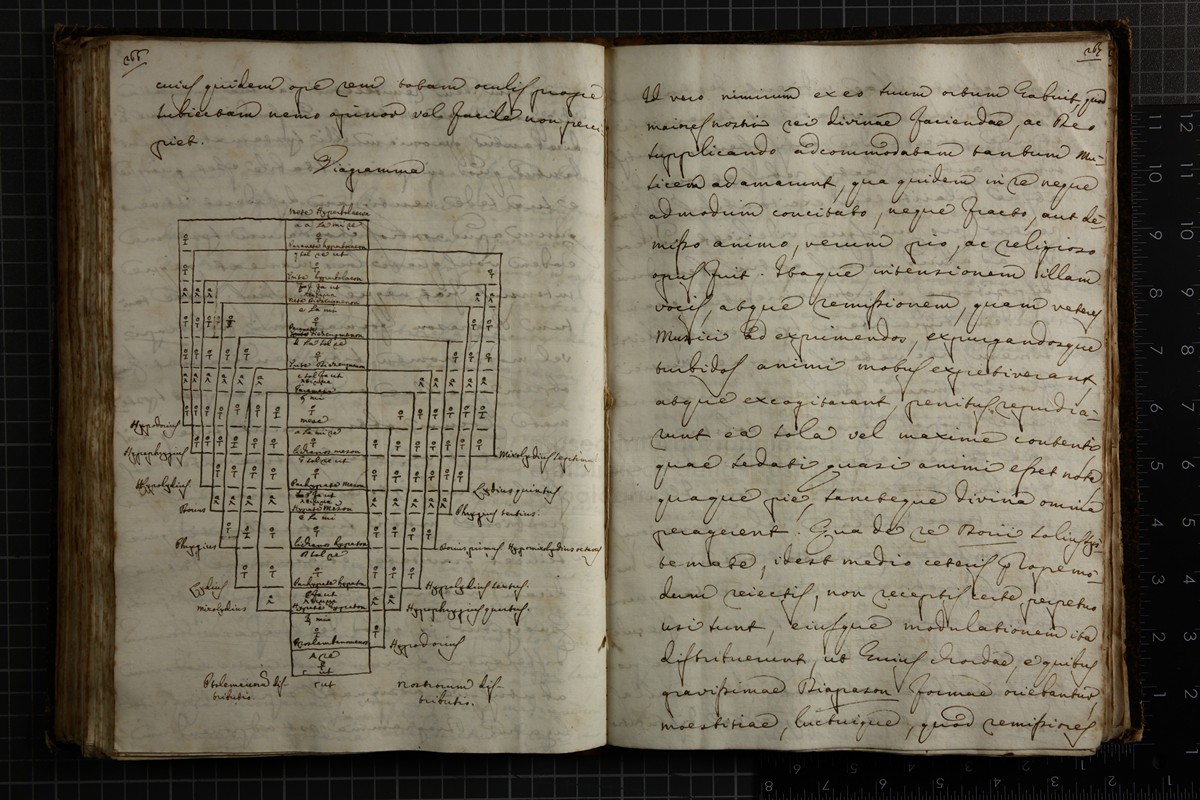 266
cuius quidem ope rem totam oculis prope
subiectam nemo opinor vel facile non perci
piet.
Diagramma
Nete Hyperbolaeon
a a la mi re
Paranete hyperboleon
g sol re ut
Trite hyperboleon
f fa ut
Nete diezeugmenon
e la mi
Paranete diezeugmenon
d la sol re
Trite diezeugmenon
c sol fa ut
Paramese
♮ mi
mese
a la mi re
Lichanos meson
G sol re ut
Parhypate Meson
F fa ut
Hypate Meson
E la mi
Lichanos hypaton
D sol re
Parhypate hypaton
C fa ut
Hypate hypaton
♮ mi
Proslambanomenos
A re
Γ ut
Hypodorius
Hypophrygius
Hypolydius
Dorius
Phrygius
Lydius
mixolydius
Mixolydius septimus
Lydius quintus
Phrygius tertius.
Dorius primus Hypomixolydius octavus
Hypolydius sextus.
Hypophrygius quartus.
Hypodorius
Ptolemaeorum dis-
tributio.
nostrorum dis-
tributio.
267
Id vero nimirum ex eo suum ortum habuit, quod
maiores nostri rei divinae faciendae, ac Deo
supplicando adcommodatam tantum mu-
sicem adamarunt, qua quidem in re neque
admodum concitato, neque fracto, aut de-
misso animo, verum pio, ac religioso
opus fuit. Itaque intensionem illam
vocis, atque remissionem, quam veteres
Musici ad exprimendos, expurgandosque
turbidos animi motus expetiverant,
atque excogitarant, penitus repudia-
runt ea sola vel maxime contenti
quae sedati quasi animi esset nota
quaque pie, sancteque divina omnia
peragerent. Qua de re Dorii solius sys-
temate, idest medio ceteris propemo-
dum reiectis, non receptis certe perpetuo
usi sunt, eiusque modulationem ita
distribuerunt, ut huius chordae, e quibus
gravissimae Diapason formae oriebantur
maestitiae, luctuique, quod remissiores